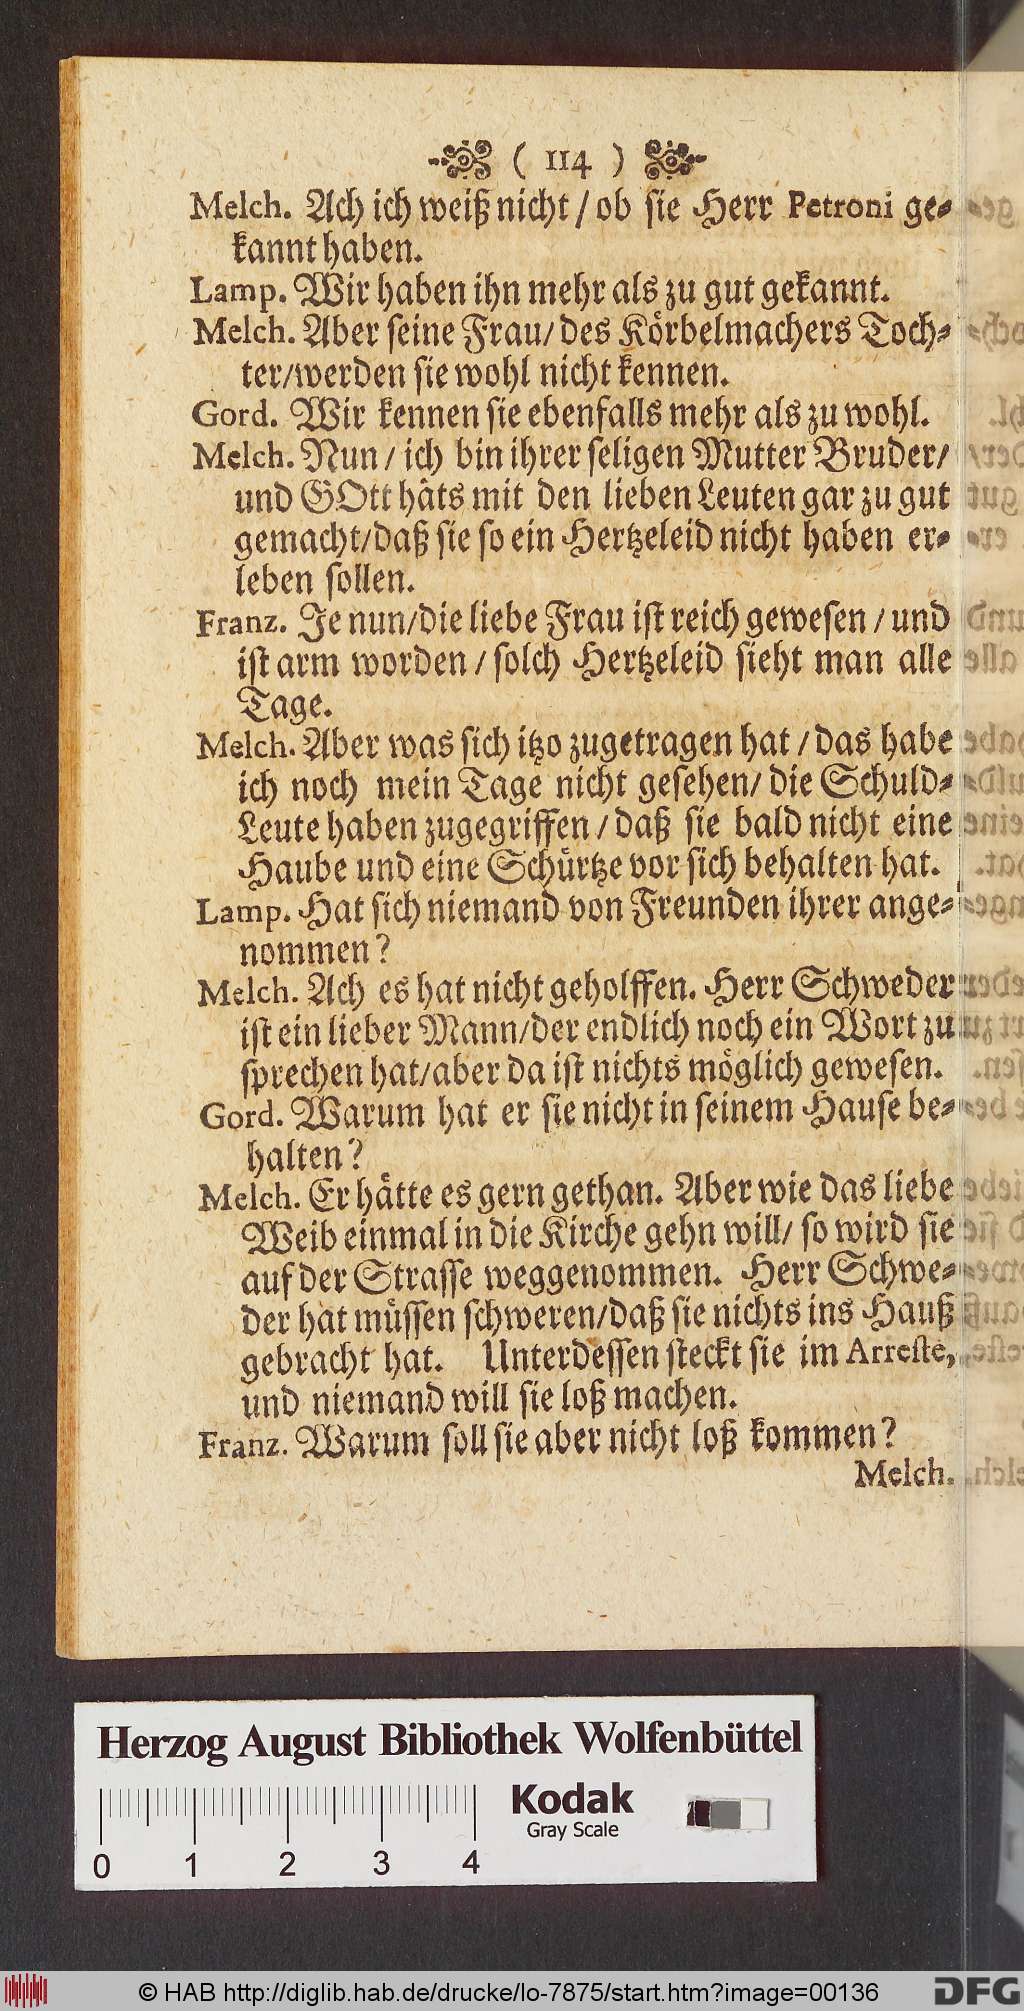 ( 114 )
Melch. Ach ich weiß nicht / ob sie Herr Petroni ge-
kannt haben.
Lamp. Wir haben ihn mehr als zu gut gekannt.
Melch. Aber seine Frau/ des Körbelmachers Toch-
ter/werden sie wohl nicht kennen.
Gord. Wir kennen sie ebenfalls mehr als zu wohl.
Melch. Nun / ich bin ihrer seligen Mutter Bruder/
und GOtt häts mit den lieben Leuten gar zu gut
gemacht/daß sie so ein Hertzeleid nicht haben er-
leben sollen.
Franz. Je nun/die liebe Frau ist reich gewesen / und
ist arm worden / solch Hertzeleid sieht man alle
Tage.
Melch. Aber was sich itzo zugetragen hat / das habe
ich noch mein Tage nicht gesehen/ die Schuld-
Leute haben zugegriffen / daß sie bald nicht eine
Haube und eine Schürtze vor sich behalten hat.
Lamp. Hat sich niemand von Freunden ihrer ange-
nommen?
Melch. Ach es hat nicht geholffen. Herr Schweder
ist ein lieber Mann/der endlich noch ein Wort zu
sprechen hat/aber da ist nichts möglich gewesen.
Gord. Warum hat er sie nicht in seinem Hause be-
halten?
Melch. Er hätte es gern gethan. Aber wie das liebe
Weib einmal in die Kirche gehn will/ so wird sie
auf der Strasse weggenommen. Herr Schwe-
der hat müssen schweren/daß sie nichts ins Hauß
gebracht hat. Unterdessen steckt sie im Arreste,
und niemand will sie loß machen.
Franz. Warum soll sie aber nicht loß kommen?
Melch.
Herzog August Bibliothek Wolfenbüttel
Kodak
Gray Scale
0 1 2 3 4
© HAB http://diglib.hab.de/drucke/lo-7875/start.htm?image=00136
DFG